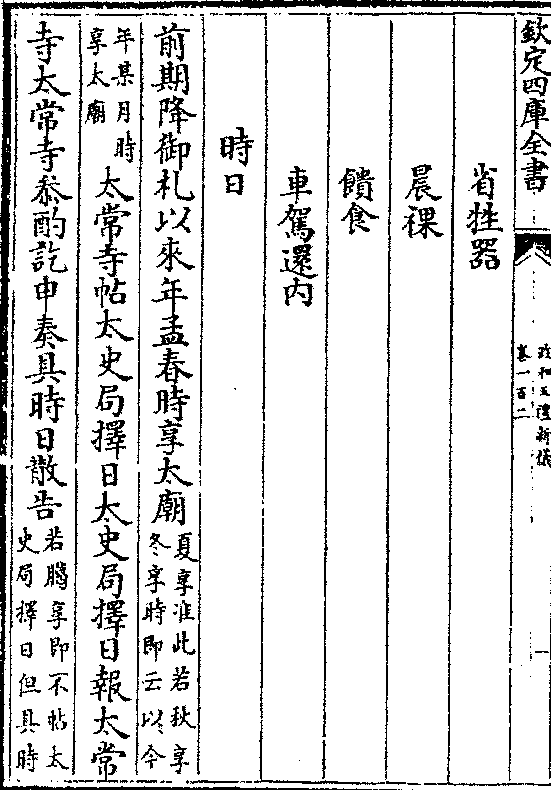 欽定四庫全書
政和五禮新儀
卷一百二
一
省牲器
晨祼
饋食
車駕還内
時日
前期降御札以來年孟春時享太廟
夏享准此若秋享
冬享時即云以今
年某月時
享太廟
太常寺帖太史局擇日太史局擇日報太常
寺太常寺叅酌訖申奏具時日散告
若臈享即不帖太
史局擇日但具時